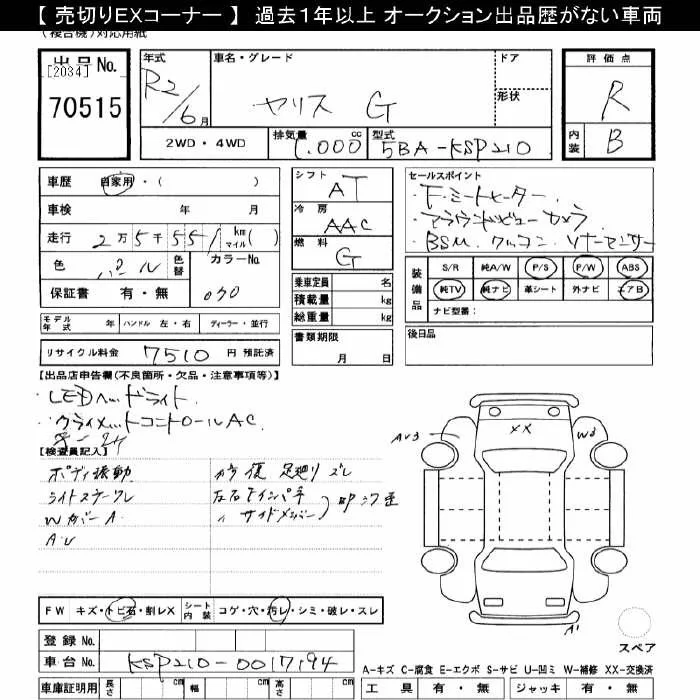 【 売切りEXコーナー 】 過去1年以上 オークション出品歴がない車両
(複合機)対応用紙
出品No.
[2034]
70515
年式 車名・グレード ドア
R2/6月 ヤリス G 形状
2WD・4WD 排気量 cc 1.000 型式 5BA-KSP210
評価点
R
内装 B
車歴 自家用・( )
車検 年 月
走行 2万5千551 km マイル ( )
色 パール 色替 カラーNo.
保証書 有・無 070
シフト AT
冷房 AAC
燃料 G
乗車定員 名
積載量 kg
総重量 kg
セールスポイント
・F・ミートヒーター.
・アラウンドビューカメラ
・BSM. クルコン. ソナーマニサー
装備品 S/R 純A/W P/S P/W ABS
純TV 純ナビ 革シート 外ナビ エアB
ナビ型番:
モデル年式 年 ハンドル 左・右 ディーラー・並行
書類期限
月 日
後日品
リサイクル料金 7510 円 預託済
【出品店申告欄(不良箇所・欠品・注意事項等)】
・LEDヘッドライト.
・クライメットコントロールAC
【検査員記入】
ボディ振動 修復 足廻りズレ
ライトスケーウレ 左右Fインパネ
Wカバー A サイドメンバー
A.U
AU3
XX
W3
A1
FW キズ・トビ石・割レX シート内装 コゲ・穴・汚レ・シミ・破レ・スレ
登録No.
車台No. KSP210-0017194
車庫証明用 長さ cm 幅 cm 高さ cm
スペア
A-キズ C-腐食 E-エクボ S-サビ U-凹ミ W-補修 XX-交換済
工具 有・無 ジャッキ 有・無